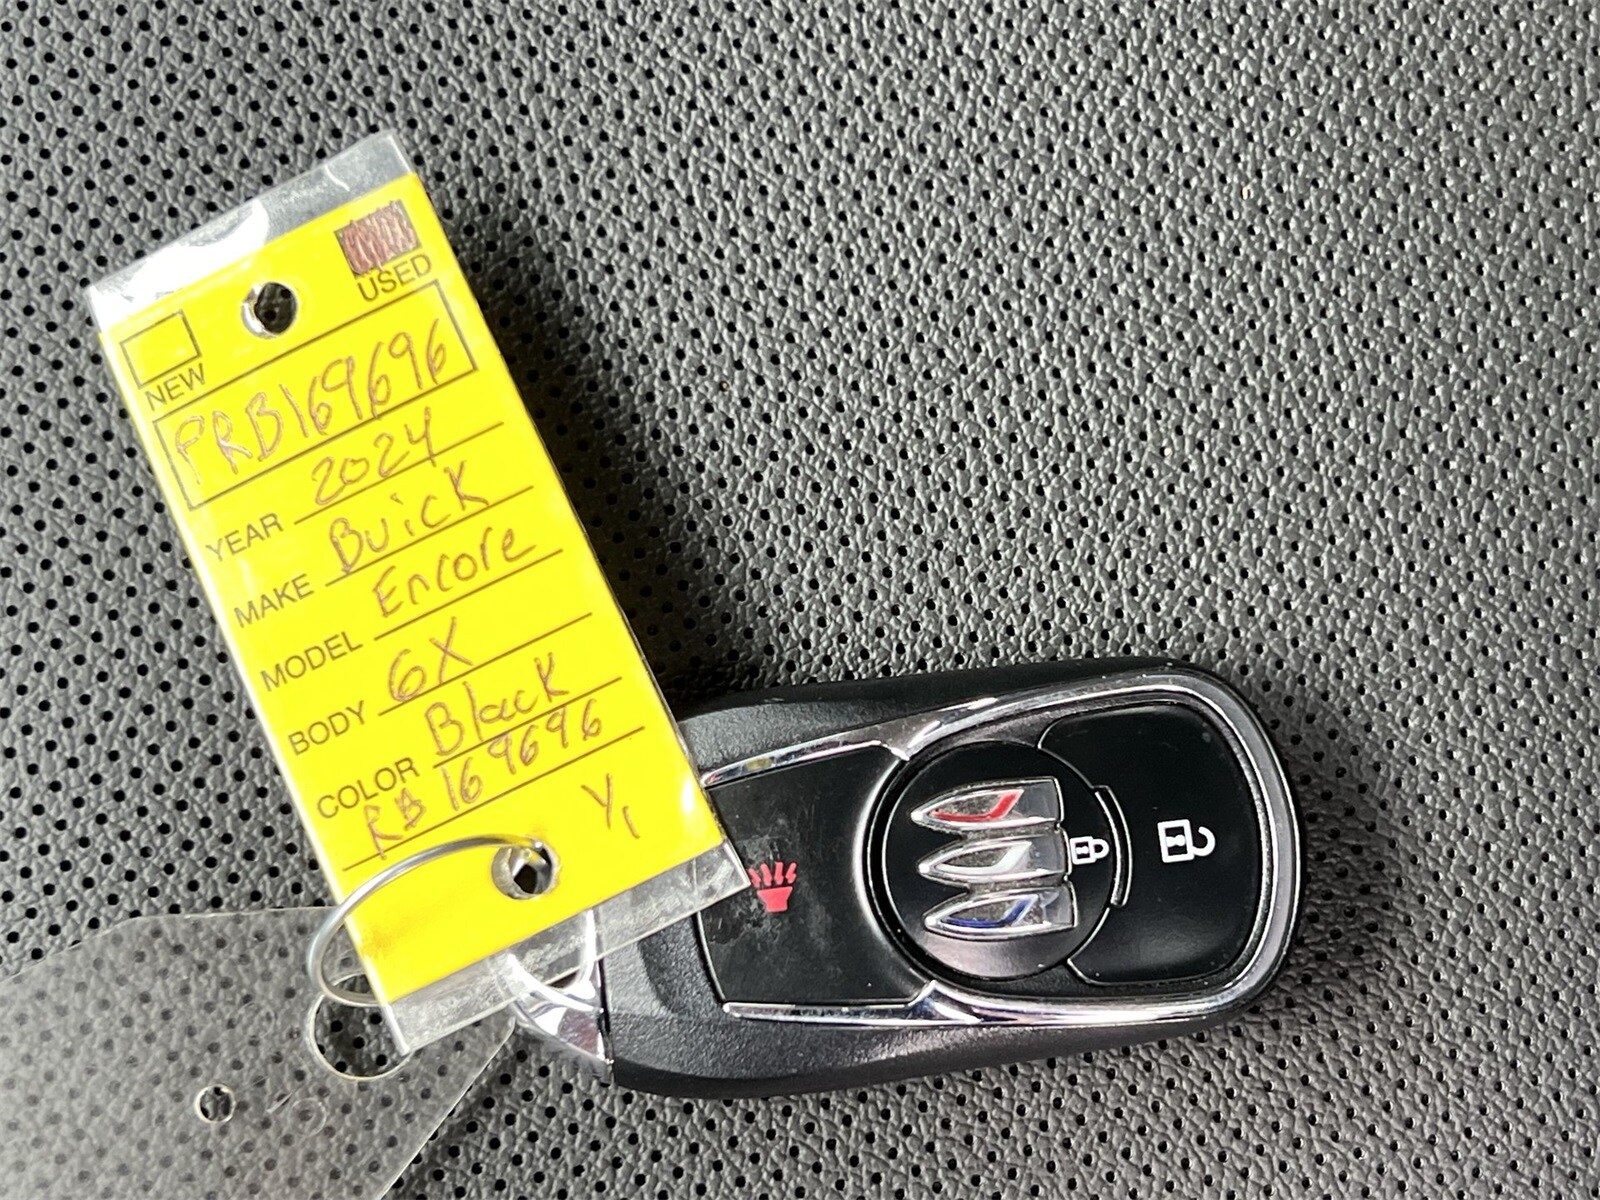 USED
NEW
PRB169696
YEAR 2024
MAKE Buick
MODEL Encore
BODY GX
COLOR Black
RB169696
Y1